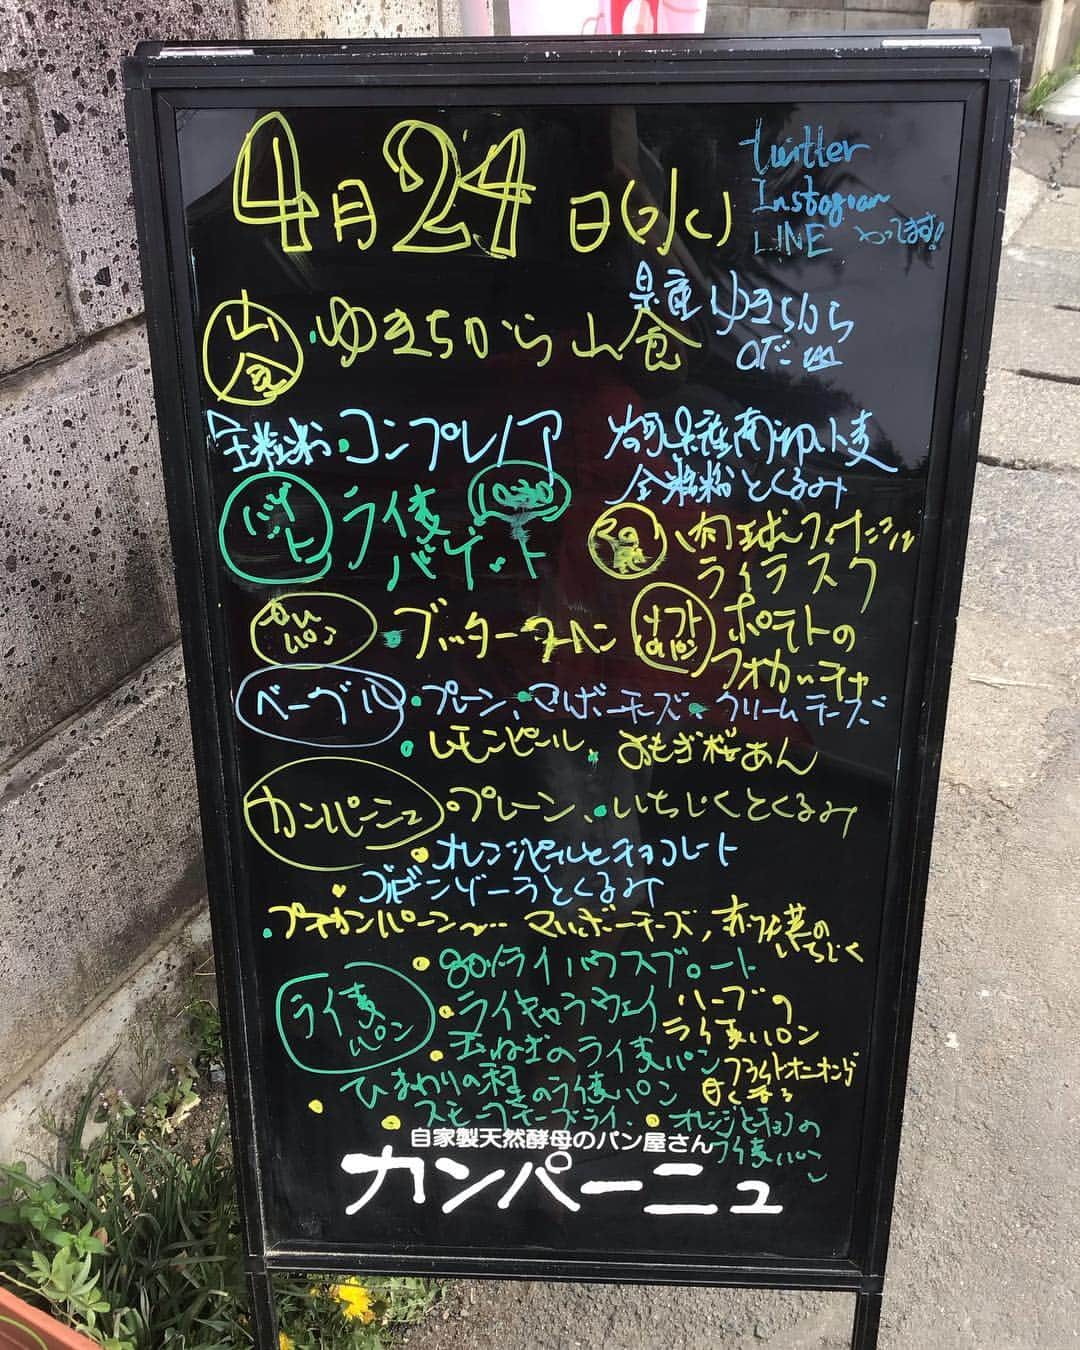 4月24日(水)
twitter
Instagram
LINE やってます!
山食
・ゆきちから山食
県産ゆきちから
全粒粉・コンプレノア
県産南部小麦
全粒粉とくるみ
バゲット
ライ麦
バゲット
10:30
その他
肉球フィナンシェ
ライラスク
・ブッタークーヘン
ソフトパン
ポテトの
フォカッチャ
ベーグル
・プレーン、・マルボーチーズ・クリームチーズ
・レモンピール・よもぎ桜あん
カンパーニュ
・プレーン、・いちじくとくるみ
・オレンジピールとチョコレート
・ゴルゴンゾーラとくるみ
・プチカンパーニュ… マルボーチーズ,赤ワイン煮のいちじく
ライ麦パン
・80%ライ ハウスブロート
・ライキャラウェイ
ハーブの
ライ麦パン
・玉ねぎのライ麦パン
フライドオニオンが
甘く香る
ひまわりの種のライ麦パン
・スモークチーズライ・オレンジとチョコの
ライ麦パン
自家製天然酵母のパン屋さん
カンパーニュ